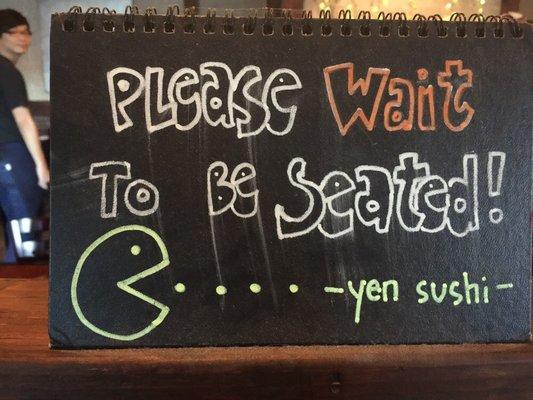 PLease Wait
To Be Seated!
-yen sushi-